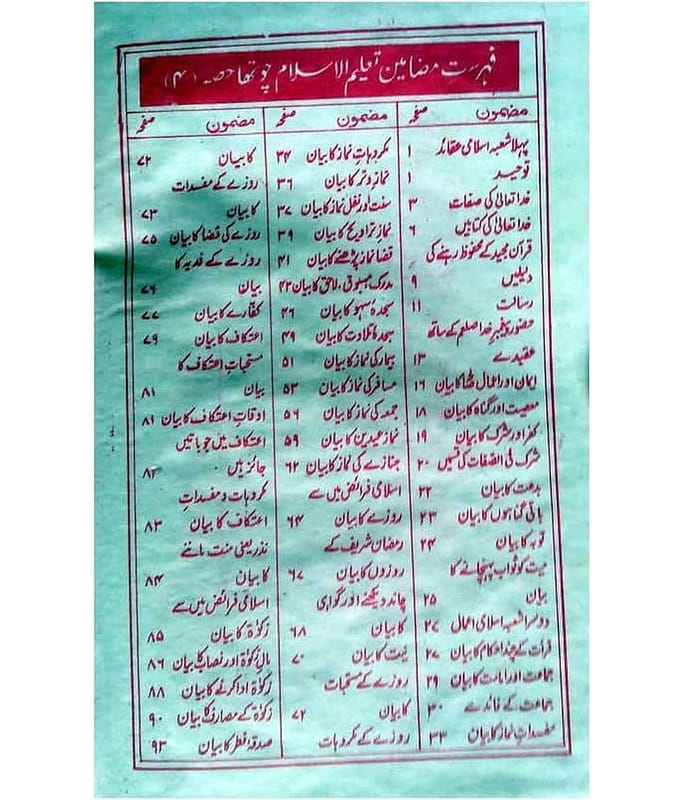 فہرست مضامین تعلیم الاسلام چوتھا حصہ (۴)
مضمون صفحہ
پہلا شعبہ اسلامی عقائد ۱
توحید ۱
خدا تعالیٰ کی صفات ۳
خدا تعالیٰ کی کتابیں ۶
قرآن مجید کے محفوظ رہنے کی
دلیلیں ۹
رسالت ۱۱
حضور پیغمبر خدا صلعم کے ساتھ
عقیدے ۱۳
ایمان اور اعمال کا بیان ۱۶
معصیت اور گناہ کا بیان ۱۸
کفر اور شرک کا بیان ۱۹
شرک فی الصفات کی قسمیں ۲۰
بدعت کا بیان ۲۲
باقی گناہوں کا بیان ۲۳
توبہ کا بیان ۲۴
میت کو ثواب پہنچانے کا
بیان ۲۵
دوسرا شعبہ اسلامی اعمال ۲۷
قرأت کے چند احکام کا بیان ۲۷
جماعت اور امامت کا بیان ۲۹
جماعت کے فائدے ۳۰
مفسدات نماز کا بیان ۳۳
مضمون صفحہ
مکروہات نماز کا بیان ۳۴
نماز وتر کا بیان ۳۶
سنت اور نفل نماز کا بیان ۳۷
نماز تراویح کا بیان ۳۹
قضا نماز پڑھنے کا بیان ۴۱
مدرک، مسبوق، لاحق کا بیان ۴۳
سجدۂ سہو کا بیان ۴۶
سجدۂ تلاوت کا بیان ۴۹
بیمار کی نماز کا بیان ۵۱
مسافر کی نماز کا بیان ۵۳
جمعہ کی نماز کا بیان ۵۶
نماز عیدین کا بیان ۵۹
جنازے کی نماز کا بیان ۶۲
اسلامی فرائض میں سے
روزے کا بیان ۶۴
رمضان شریف کے
روزوں کا بیان ۶۷
چاند دیکھنے اور گواہی
کا بیان ۶۸
نیت کا بیان ۷۰
روزے کے مستحبات
کا بیان ۷۲
روزے کے مکروہات
مضمون صفحہ
کا بیان ۷۲
روزے کے مفسدات
کا بیان ۷۳
روزے کی قضا کا بیان ۷۵
روزے کے فدیہ کا
بیان ۷۶
کفارے کا بیان ۷۷
اعتکاف کا بیان ۷۹
مستحبات اعتکاف کا
بیان ۸۱
اوقات اعتکاف کا بیان ۸۱
اعتکاف میں جو باتیں
جائز ہیں ۸۲
مکروہات و مفسدات
اعتکاف کا بیان ۸۳
نذر یعنی منت ماننے
کا بیان ۸۴
اسلامی فرائض میں سے
زکوٰۃ کا بیان ۸۵
مال زکوٰۃ اور نصاب کا بیان ۸۶
زکوٰۃ ادا کرنے کا بیان ۸۸
زکوٰۃ کے مصارف کا بیان ۹۰
صدقۂ فطر کا بیان ۹۳